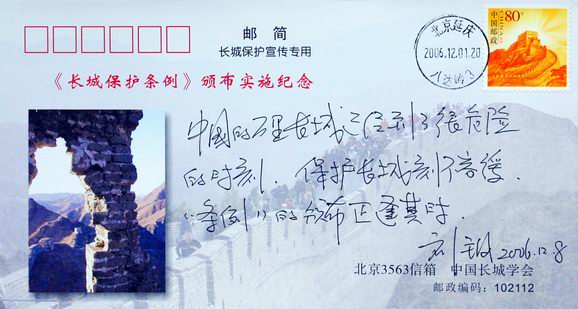 邮 简
长城保护宣传专用
《长城保护条例》颁布实施纪念
80分
中国邮政
CHINA
北京延庆
2006.12.01.20
八达岭3
中国的万里长城已经到了很危险
的时刻、保护长城刻不容缓、
“条例”的颁布正逢其时、
2006.12.8
北京3563信箱 中国长城学会
邮政编码：102112